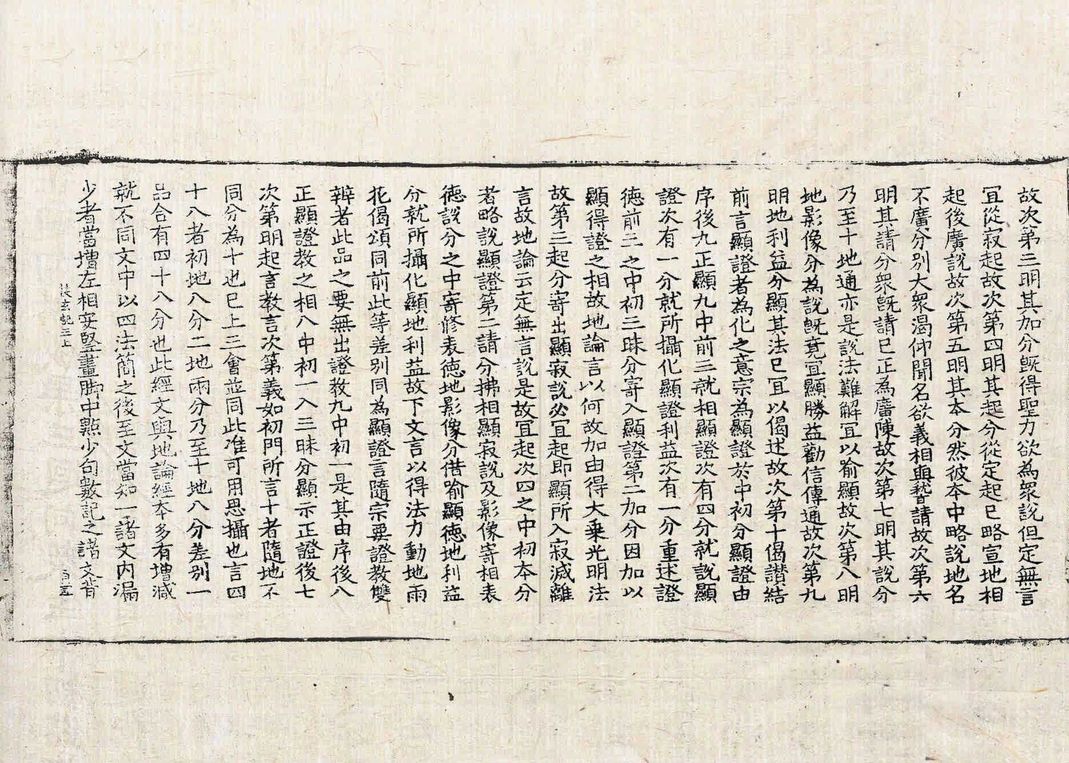 故次第三明其加分旣得聖力欲為衆說但定無言
冝從寂起故次第四明其起分從定起已略宣地相
起後廣說故次第五明其本分然彼本中略說地名
不廣分別大衆渴仰聞名欲義相與瞽請故次第六
明其請分衆旣請已正為廣陳故次第七明其說分
乃至十地通亦是說法難解冝以喻顯故次第八明
地影像分為說旣竟冝顯勝益勸信傳通故次第九
明地利益分顯其法已冝以偈述故次第十偈讃結
前言顯證者為化之意宗為顯證於中初分顯證由
序後九正顯九中前三就相顯證次有四分就說顯
證次有一分就所攝化顯證利益次有一分重述證
德前三之中初三昧分寄入顯證第二加分因加以
顯得證之相故地論言以何故加由得大乗光明法
故第三起分寄出顯寂說必冝起即顯所入寂滅離
言故地論云定無言說是故冝起次四之中初本分
者略說顯證第二請分拂相顯寂說及影像寄相表
德說分之中寄修表德地影像分借喻顯德地利益
分就所攝化顯地利益故下文言以得法力動地雨
花偈頌同前此等差別同為顯證言隨宗要證教雙
辨者此品之要無出證教九中初一是其由序後八
正顯證教之相八中初一入三昧分顯示正證後七
次第明起言教言次第義如初門所言十者隨地不
同分為十也已上三會並同此准可用思攝也言四
十八者初地八分二地兩分乃至十地八分差別一
品合有四十八分也此經文與地論經本多有增減
就不同文中以四法簡之後至文當知一諸文內漏
少者當増左相安竪畫脚中點少句數記之諸文皆